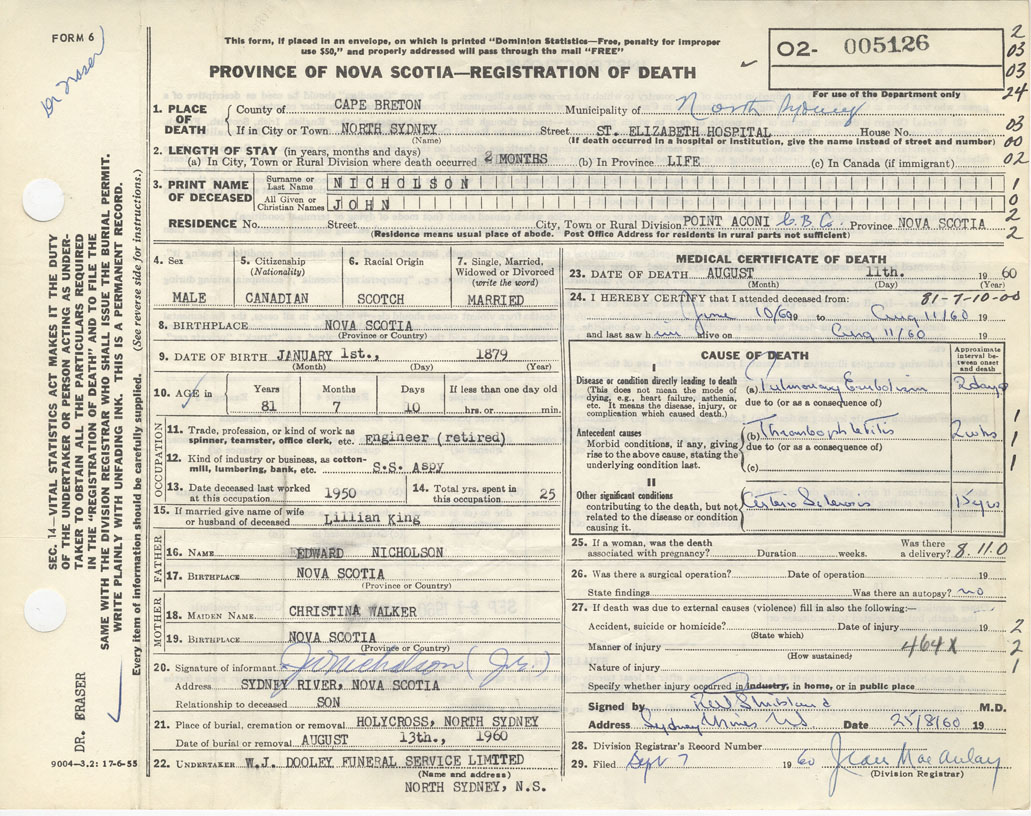 FORM 6
Dr Fraser
This form, if placed in an envelope, on which is printed "Dominion Statistics—Free, penalty for improper
use $50," and properly addressed will pass through the mail "FREE"
PROVINCE OF NOVA SCOTIA—REGISTRATION OF DEATH
02- 005126
For use of the Department only
2
03
03
24
03
00
02
1
0
2
2
1. PLACE OF DEATH
County of CAPE BRETON Municipality of North Sydney
If in City or Town NORTH SYDNEY Street ST. ELIZABETH HOSPITAL House No.
(Name) (If death occurred in a hospital or institution, give the name instead of street and number)
2. LENGTH OF STAY (in years, months and days)
(a) In City, Town or Rural Division where death occurred 2 MONTHS (b) In Province LIFE (c) In Canada (if immigrant)
3. PRINT NAME OF DECEASED
Surname or Last Name NICHOLSON
All Given or Christian Names JOHN
RESIDENCE No. Street City, Town or Rural Division POINT ACONI C.B.C. Province NOVA SCOTIA
(Residence means usual place of abode. Post Office Address for residents in rural parts not sufficient)
4. Sex
MALE
5. Citizenship (Nationality)
CANADIAN
6. Racial Origin
SCOTCH
7. Single, Married, Widowed or Divorced (write the word)
MARRIED
8. BIRTHPLACE NOVA SCOTIA
(Province or Country)
9. DATE OF BIRTH JANUARY 1st., 1879
(Month) (Day) (Year)
10. AGE in
Years Months Days If less than one day old
81 7 10 hrs. or min.
OCCUPATION
11. Trade, profession, or kind of work as
spinner, teamster, office clerk, etc. Engineer (retired)
12. Kind of industry or business, as cotton-
mill, lumbering, bank, etc. S.S. Aspy
13. Date deceased last worked
at this occupation 1950
14. Total yrs. spent in
this occupation 25
15. If married give name of wife
or husband of deceased Lillian King
FATHER
16. NAME EDWARD NICHOLSON
17. BIRTHPLACE NOVA SCOTIA
(Province or Country)
MOTHER
18. MAIDEN NAME CHRISTINA WALKER
19. BIRTHPLACE NOVA SCOTIA
(Province or Country)
20. Signature of informant J Nicholson (Jr.)
Address SYDNEY RIVER, NOVA SCOTIA
Relationship to deceased SON
21. Place of burial, cremation or removal HOLYCROSS, NORTH SYDNEY
Date of burial or removal AUGUST 13th., 1960
22. UNDERTAKER W.J. DOOLEY FUNERAL SERVICE LIMITED
(Name and address)
NORTH SYDNEY, N.S.
MEDICAL CERTIFICATE OF DEATH
23. DATE OF DEATH AUGUST 11th. 1960
(Month) (Day) (Year)
81-7-10-00
24. I HEREBY CERTIFY that I attended deceased from:
June 10/60 19 to Aug 11/60 19
and last saw h im alive on Aug 11/60 19
CAUSE OF DEATH
Approximate interval between onset and death
I
Disease or condition directly leading to death
(This does not mean the mode of
dying, e.g., heart failure, asthenia,
etc. It means the disease, injury, or
complication which caused death.)
(a) Pulmonary Embolism 2 days
due to (or as a consequence of)
Antecedent causes
Morbid conditions, if any, giving
rise to the above cause, stating the
underlying condition last.
(b) Thrombophlebitis 2 wks
due to (or as a consequence of)
(c)
1
1
1
II
Other significant conditions
contributing to the death, but not
related to the disease or condition
causing it.
Arterio Sclerosis 15 yrs
25. If a woman, was the death
associated with pregnancy? Duration weeks. Was there a delivery? 8.11.0
26. Was there a surgical operation? Date of operation 19
State findings Was there an autopsy? no
27. If death was due to external causes (violence) fill in also the following:—
Accident, suicide or homicide? Date of injury 19
(State which)
Manner of injury 464X
(How sustained)
Nature of injury
2
2
1
Specify whether injury occurred in industry, in home, or in public place
Signed by M.D.
Address Sydney Mines NS Date 25/8/60 19
28. Division Registrar's Record Number
29. Filed Sept 7 1960 Jean MacAulay
(Division Registrar)
SEC. 14—VITAL STATISTICS ACT MAKES IT THE DUTY
OF THE UNDERTAKER OR PERSON ACTING AS UNDER-
TAKER TO OBTAIN ALL THE PARTICULARS REQUIRED
IN THE "REGISTRATION OF DEATH" AND TO FILE THE
SAME WITH THE DIVISION REGISTRAR WHO SHALL ISSUE THE BURIAL PERMIT.
WRITE PLAINLY WITH UNFADING INK. THIS IS A PERMANENT RECORD.
Every item of information should be carefully supplied. (See reverse side for instructions.)
DR. FRASER
9004—3.2: 17-6-55